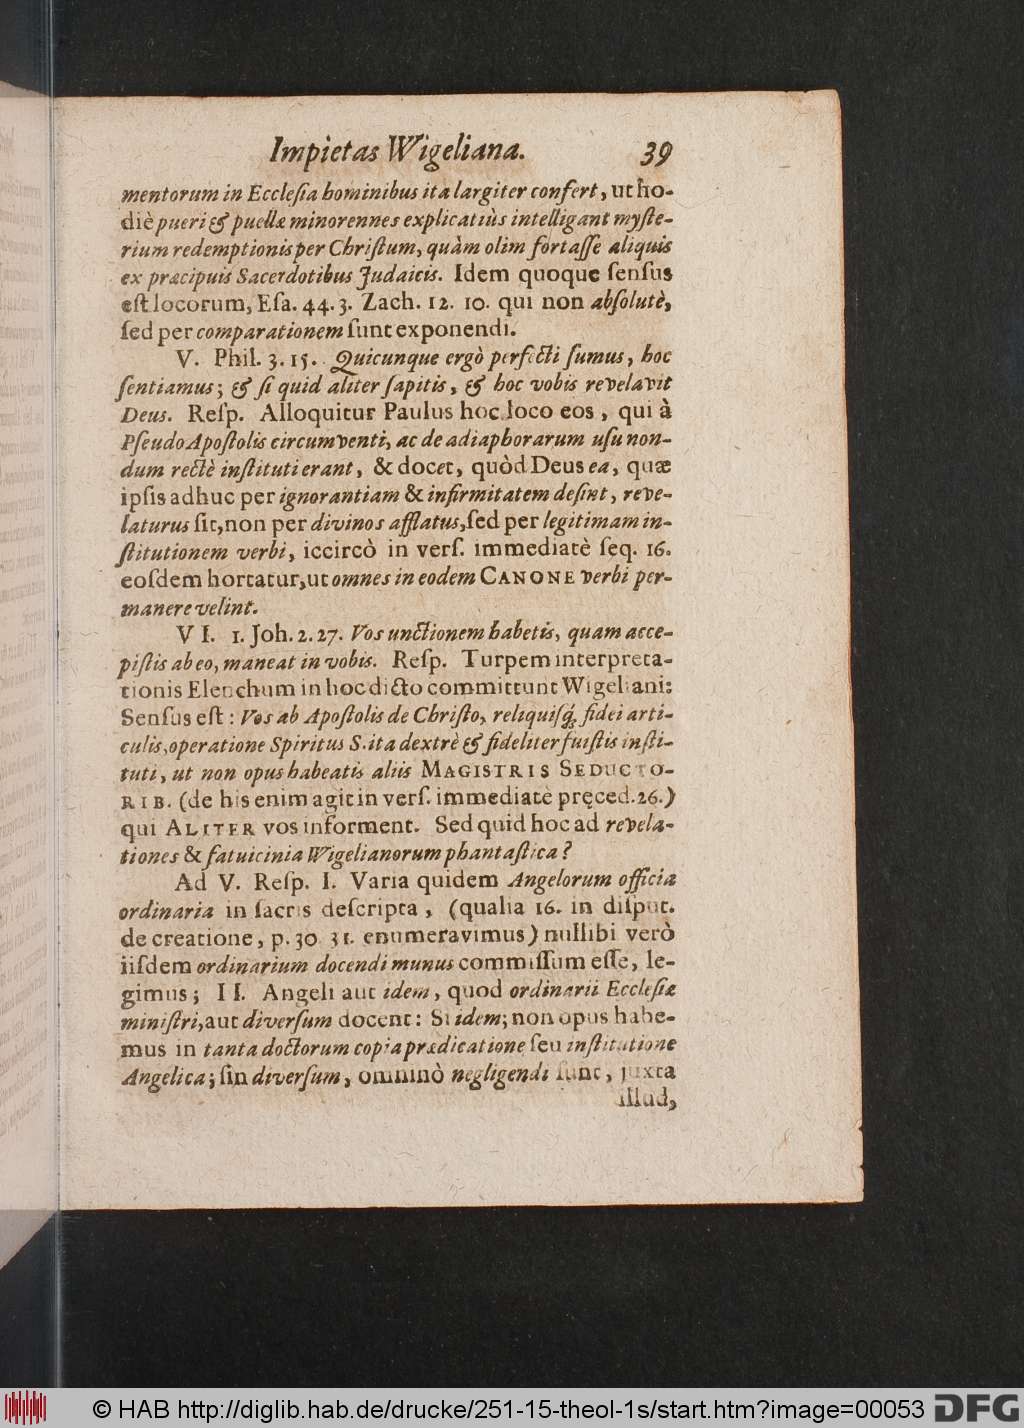 Impietas Wigeliana. 39
mentorum in Ecclesia hominibus ita largiter confert, ut ho-
diè pueri & puellæ minorennes explicatiùs intelligant myste-
rium redemptionis per Christum, quàm olim fortasse aliquis
ex præcipuis Sacerdotibus Judaicis. Idem quoque sensus
est locorum, Esa. 44. 3. Zach. 12. 10. qui non absolutè,
sed per comparationem sunt exponendi.
V. Phil. 3. 15. Quicunque ergò perfecti sumus, hoc
sentiamus; & si quid aliter sapitis, & hoc vobis revelavit
Deus. Resp. Alloquitur Paulus hoc loco eos, qui à
Pseudo Apostolis circumventi, ac de adiaphorarum usu non-
dum rectè instituti erant, & docet, quòd Deus ea, quæ
ipsis adhuc per ignorantiam & infirmitatem desint, reve-
laturus sit, non per divinos afflatus, sed per legitimam in-
stitutionem verbi, iccircò in vers. immediatè seq. 16.
eosdem hortatur, ut omnes in eodem CANONE verbi per-
manere velint.
VI. 1. Joh. 2. 27. Vos unctionem habetis, quam acce-
pistis ab eo, maneat in vobis. Resp. Turpem interpreta-
tionis Elenchum in hoc dicto committunt Wigeliani:
Sensus est: Vos ab Apostolis de Christo, reliquisq́; fidei arti-
culis, operatione Spiritus S. ita dextrè & fideliter fuistis insti-
tuti, ut non opus habeatis aliis MAGISTRIS SEDUCTO-
RIB. (de his enim agit in vers. immediatè pręced. 26.)
qui ALITER vos informent. Sed quid hoc ad revela-
tiones & fatuicinia Wigelianorum phantastica?
Ad V. Resp. I. Varia quidem Angelorum officia
ordinaria in sacris descripta, (qualia 16. in disput.
de creatione, p. 30 31. enumeravimus) nullibi verò
iisdem ordinarium docendi munus commissum esse, le-
gimus; II. Angeli aut idem, quod ordinarii Ecclesiæ
ministri, aut diversum docent: Si idem; non opus habe-
mus in tanta doctorum copia prædicatione seu institutione
Angelica; sin diversum, omninò negligendi sunt, juxta
illud,
© HAB http://diglib.hab.de/drucke/251-15-theol-1s/start.htm?image=00053
DFG